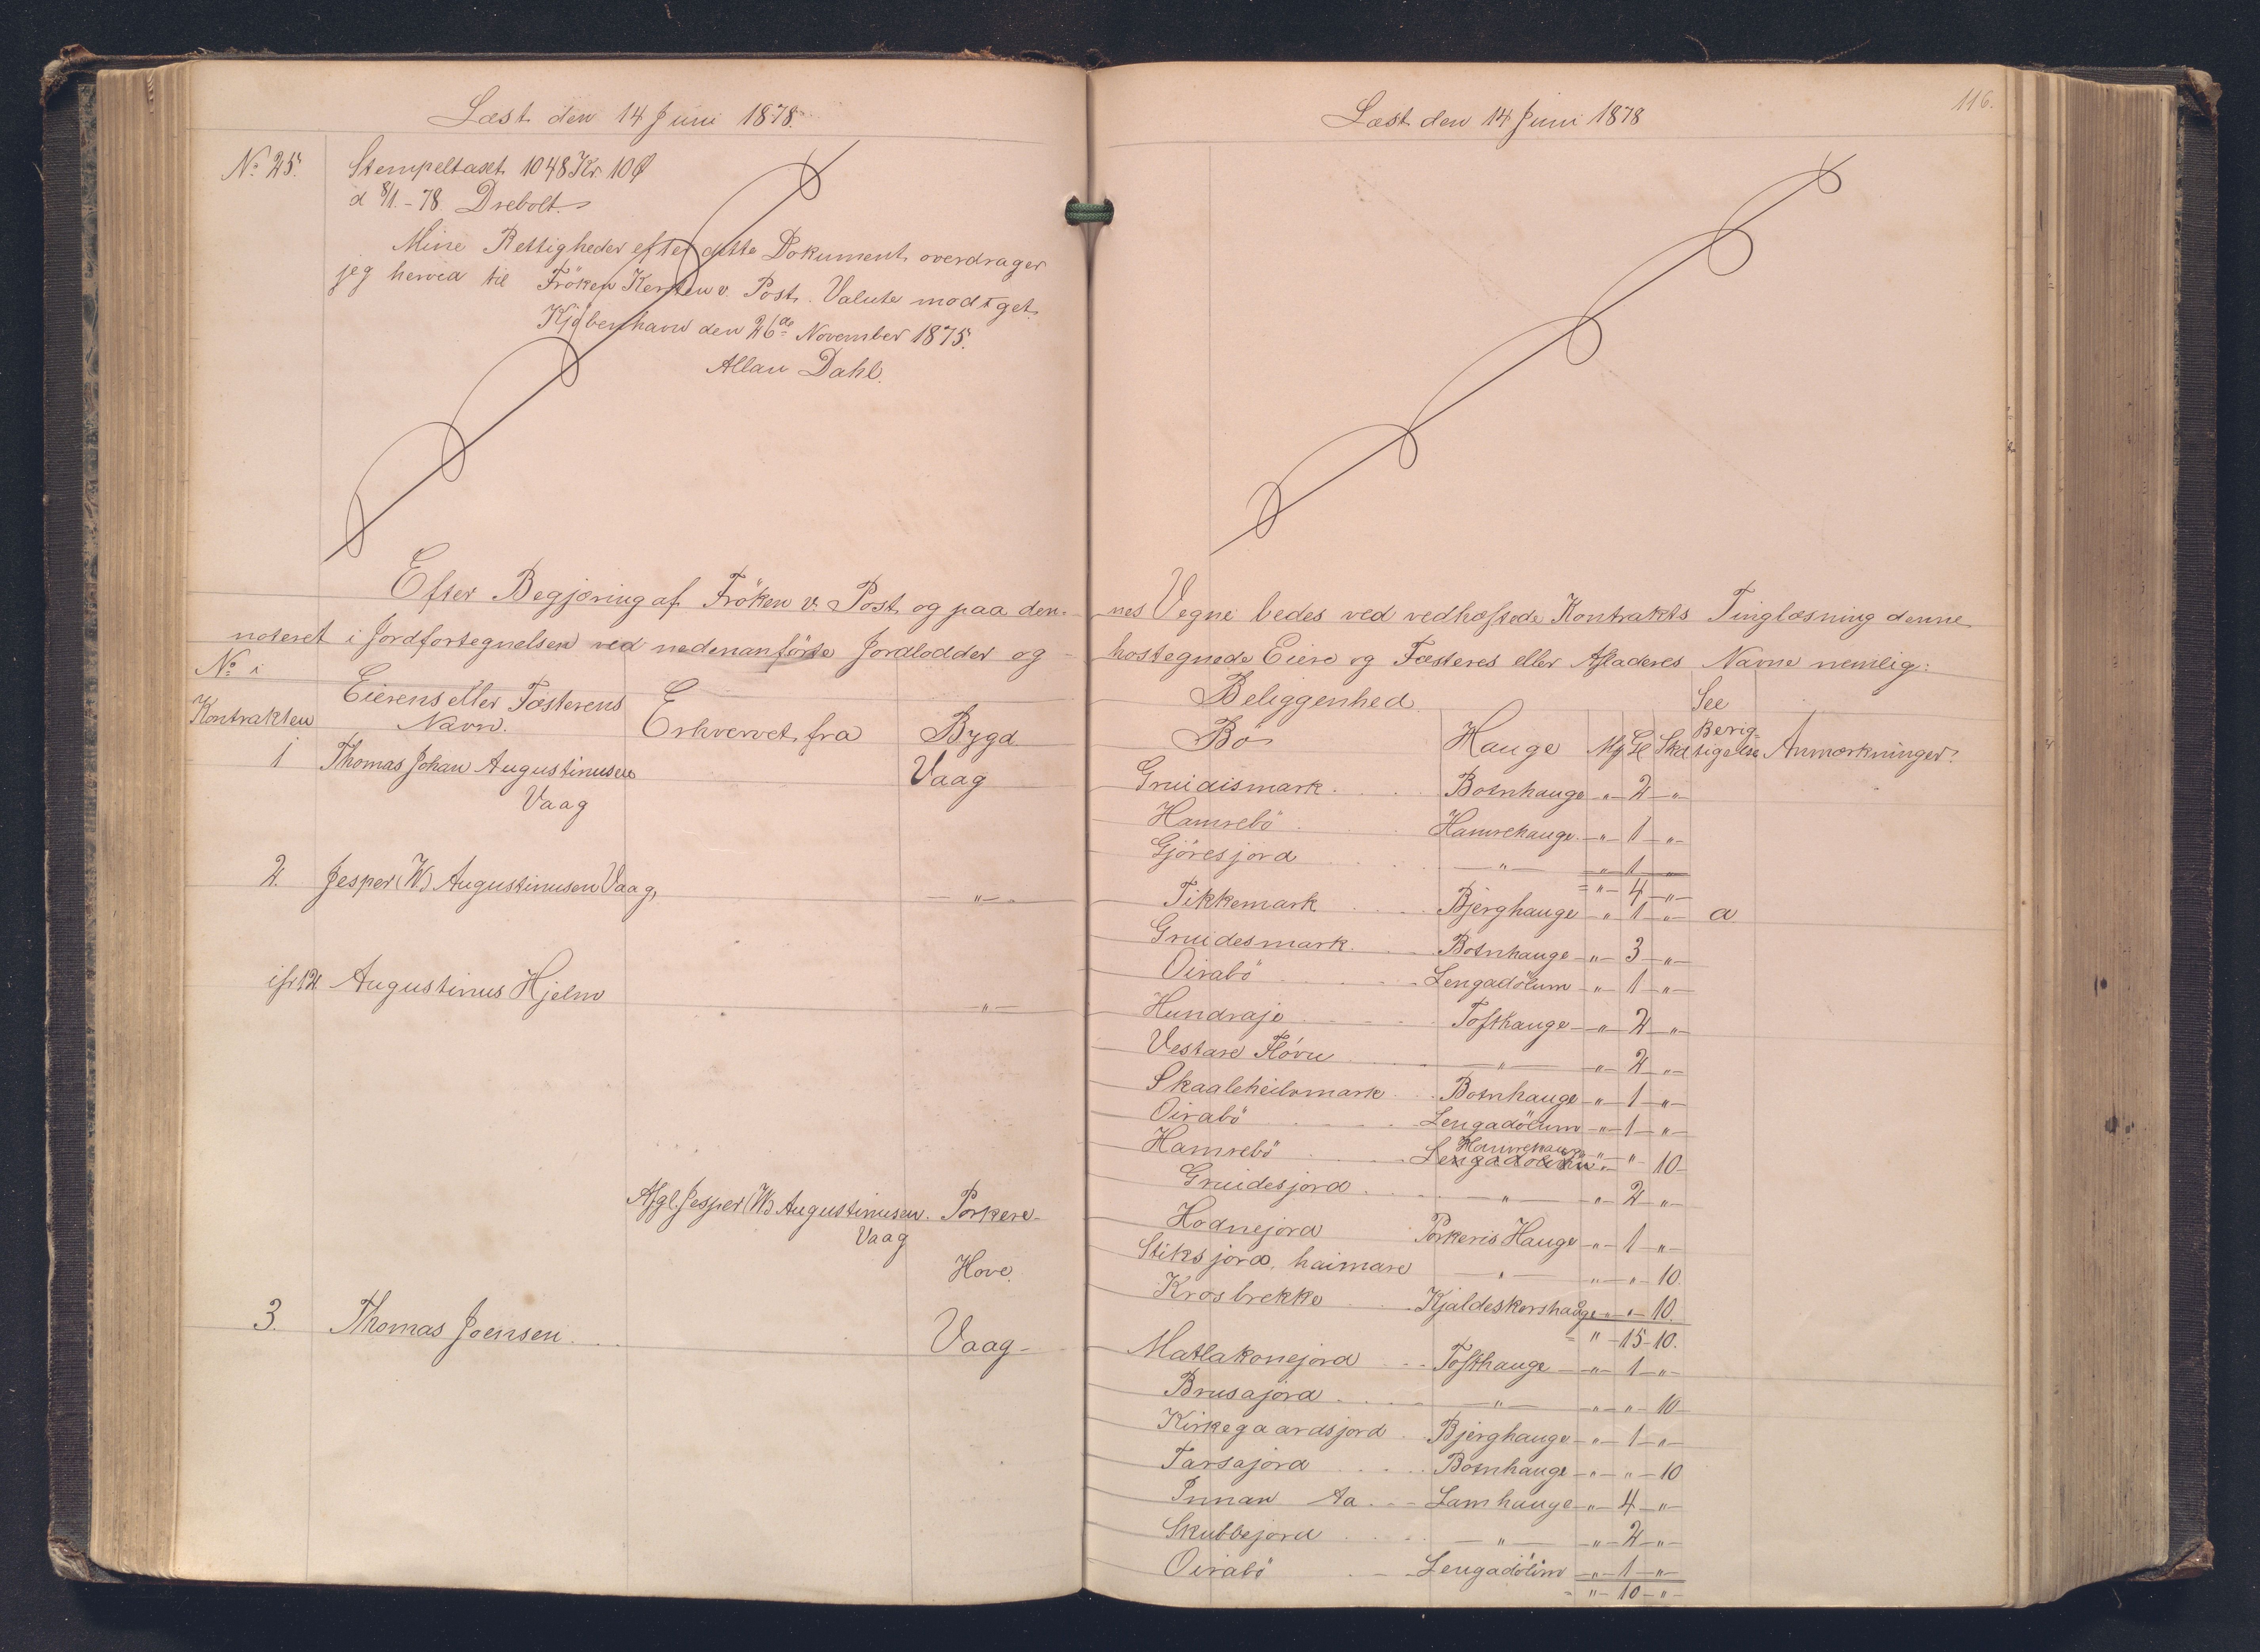 Læst den 14 Juni 1878.
No 25.
Stempeltaxt 1048 Kr. 10 Ø
d 8/1 - 78 Drebolt.
Mine Rettigheder efter dette Dokument overdrager
jeg herved til Fröken Kersten v. Post. Valuta modtget.
Kjøbenhavn den 26de November 1875.
Allan Dahl.
Efter Begjæring af Fröken v. Post og paa den-
noteret i Jordfortegnelsen ved nedenanförte Jordlodder og
No i Kontrakten
Eierens eller Fæsterens Navn.
Erhvervet fra
Bygd
1 Thomas Johan Augustinusen Vaag
Vaag
2. Jesper (W) Augustinusen Vaag, — " —
ifr 12 Augustinus Hjelm — " —
Afgl. Jesper (W) Augustinusen. Porkere
Vaag
Hove.
3. Thomas Joensen Vaag
116.
Læst den 14 Juni 1878
nes Vegne bedes ved vedhæftede Kontrakts Tinglæsning denne
hostegnede Eiere og Fæsteres eller Afladeres Navne nemlig:
Beliggenhed
Bö Hauge Mk Gl Sk See Berigtigelse Anmærkninger.
Gruidismark Botnhauge " 2 "
Hamrebö Hamrehauge " 1 "
Gjöresjord " " 1
= " 4 "
Tikkemark Bjerghauge " 1 " a
Gruidesmark Botnhauge " 3 "
Oirabö Lengadölum " 1 "
Hundraje Tofthauge " 2 "
Vestare Flövu " " 2 "
Skaaleheilomark Botnhauge " 1 "
Oirabö Lengadölum " 1 "
Hamrebö Hamrehauge " " 10
Lengadölum
Gruidesjord " " 2 "
Hodnejord Porkeris Hauge " 1 "
Stiksjord, haimare " " " 10.
Krosbrekke Kjaldeskershauge " " 10.
= " 15 10.
Matlakonejord Tofthauge " 1 "
Brusajord " " " 10
Kirkegaardsjord Bjerghauge " 1 "
Tarsajord Botnhauge " " 10
Innan Aa Lamhauge " 4 "
Skubbejord " " 2 "
Oirabö Lengadölim " 1 "
= " 10 "